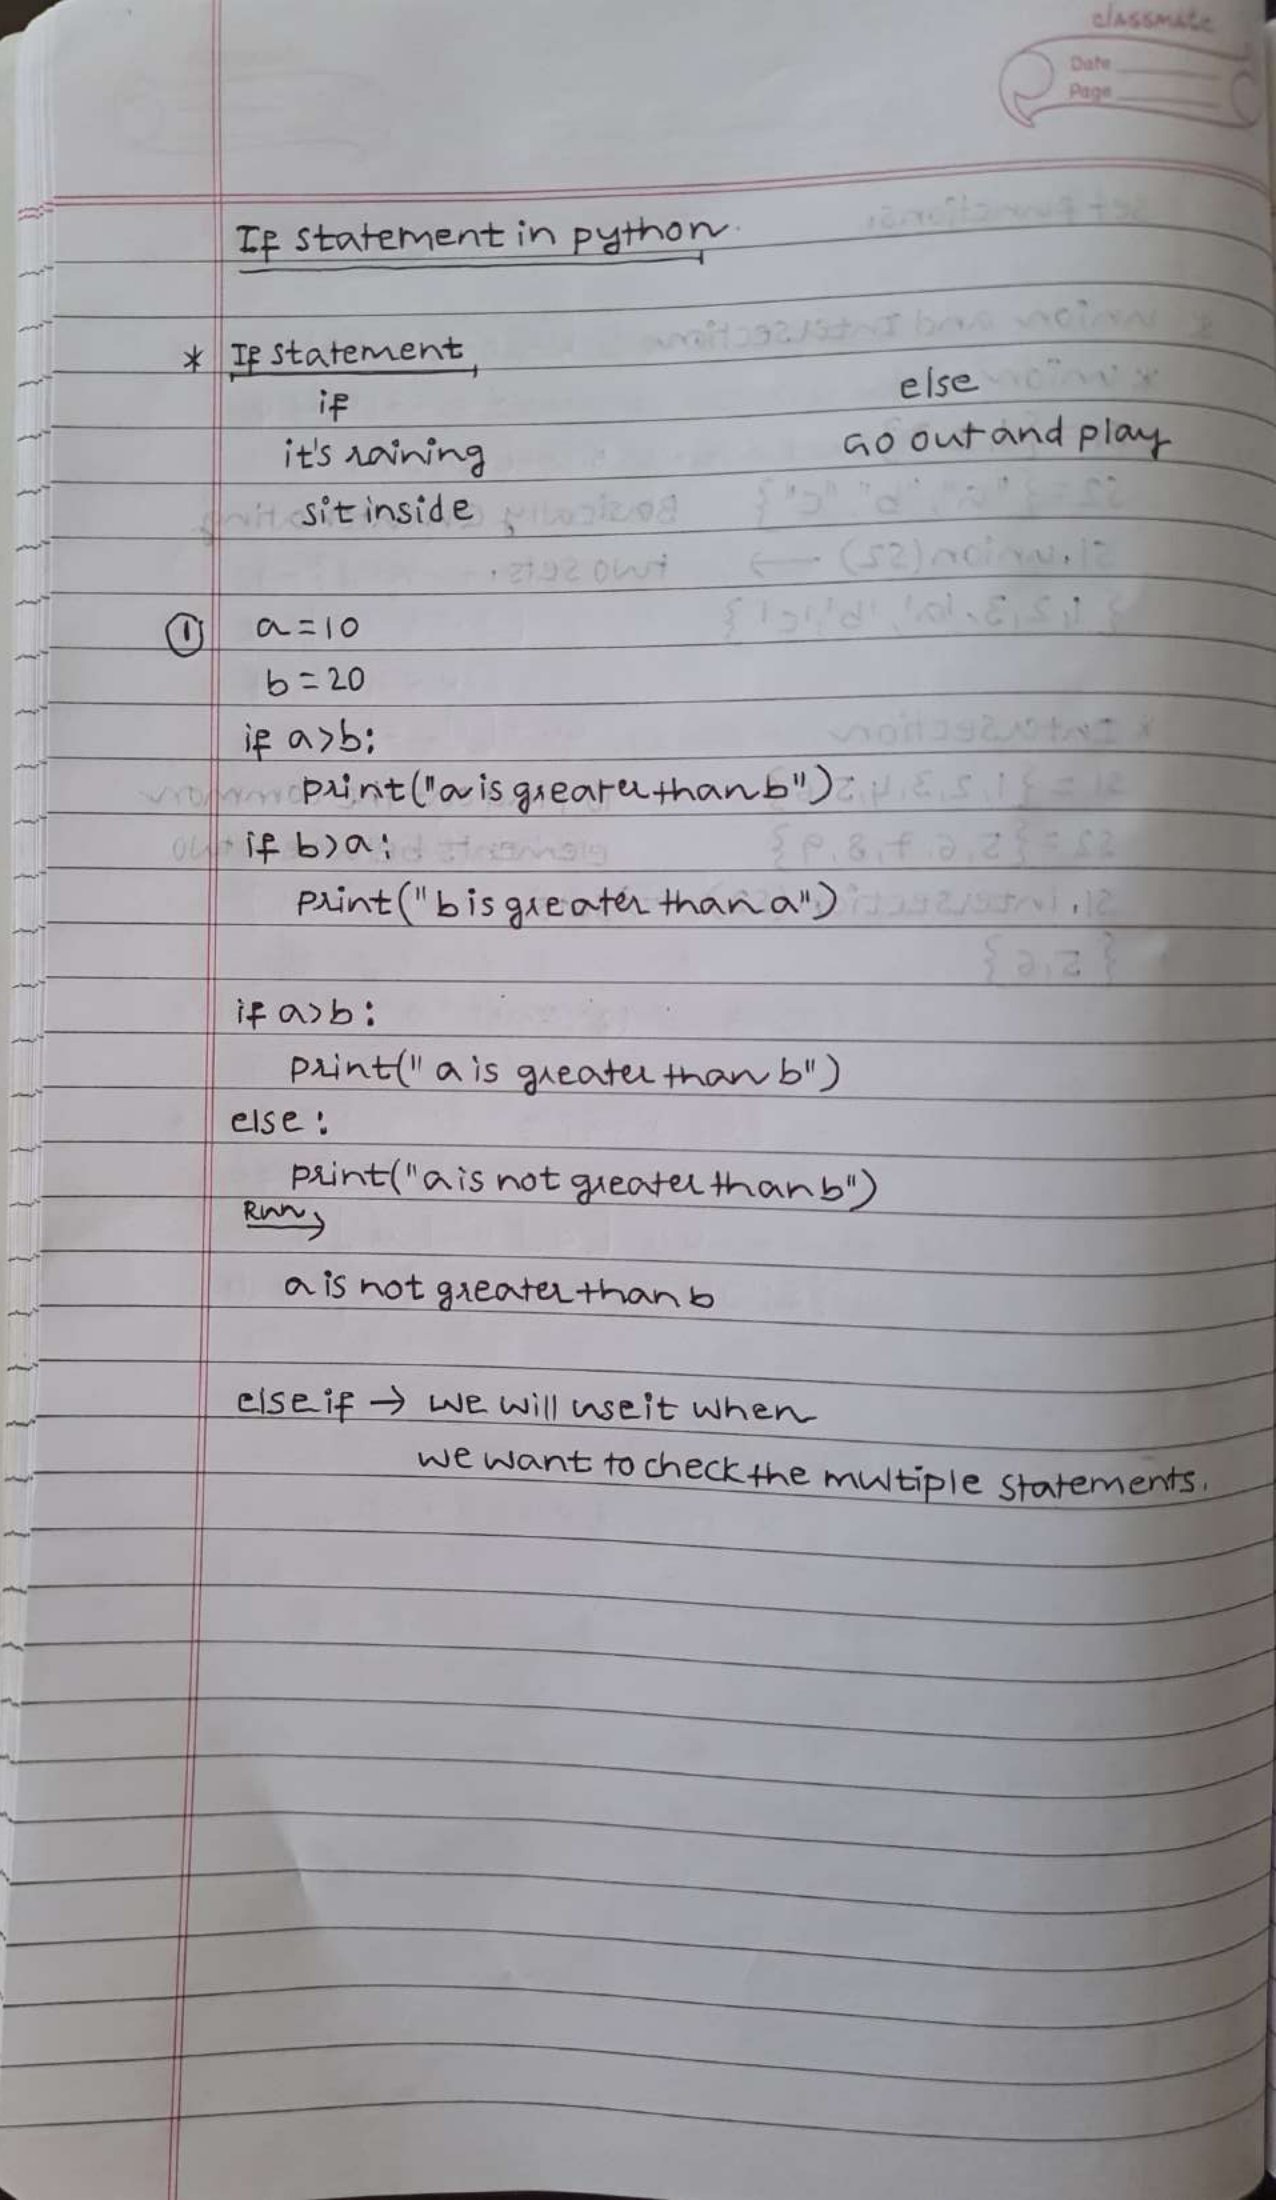 classmate
Date
Page
If statement in python
* If statement
if
it's raining
sit inside
else
Go out and play
① a = 10
b = 20
if a>b:
print("a is greater than b")
if b>a:
print("b is greater than a")
if a>b:
print("a is greater than b")
else:
print("a is not greater than b")
Run
a is not greater than b
else if → we will use it when
we want to check the multiple statements.